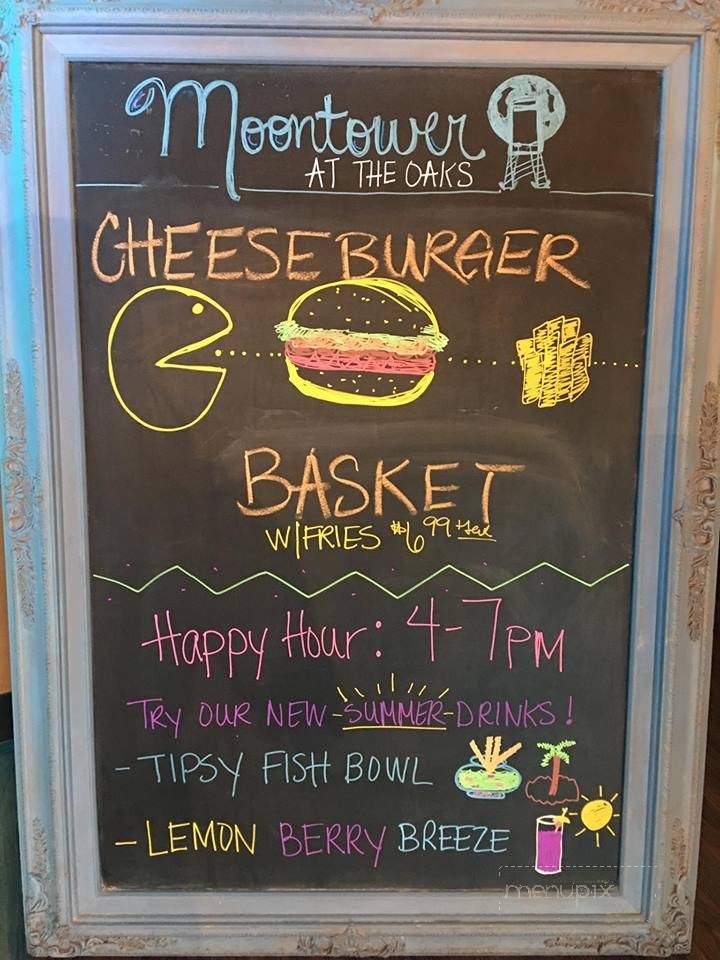 Moontower
AT THE OAKS
CHEESEBURGER
BASKET
W/FRIES $6.99 +tax
Happy Hour: 4-7PM
TRY OUR NEW -SUMMER- DRINKS!
- TIPSY FISH BOWL
- LEMON BERRY BREEZE
menupix